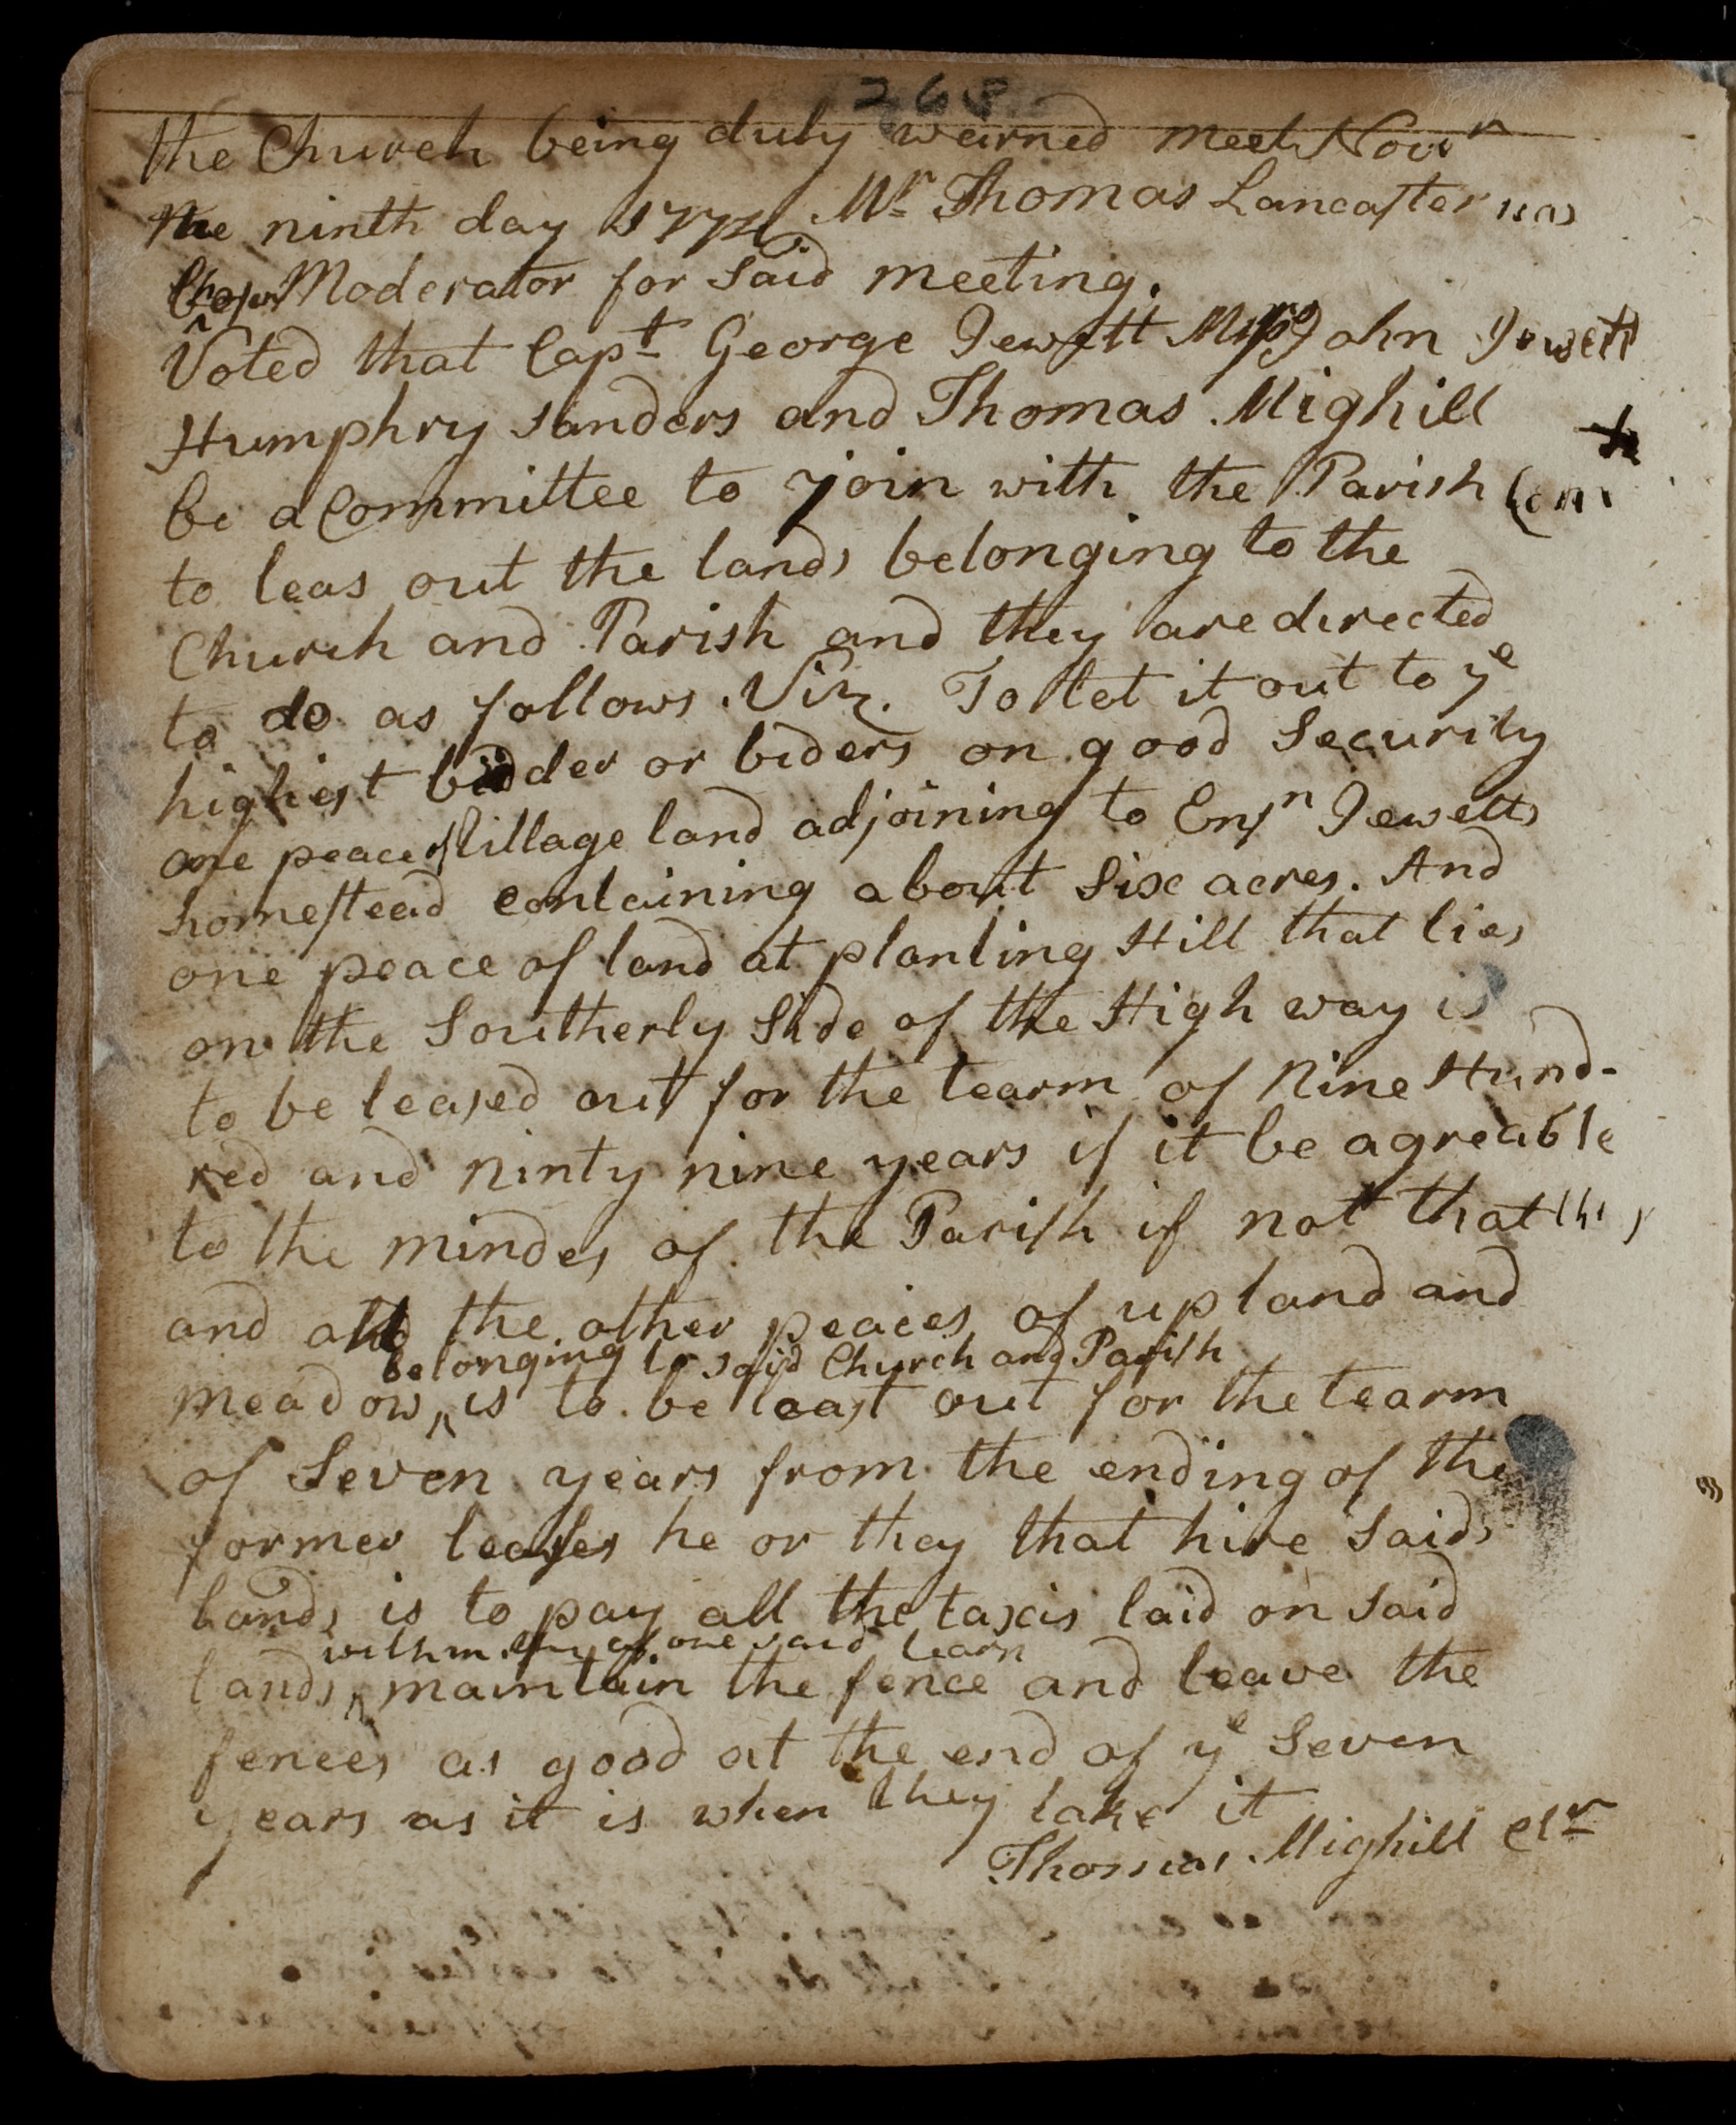 268
the Church being duly warned meet Novr
the ninth day 1774 Mr Thomas Lancaster was
Chosen Moderator for Said meeting.
Voted that Capt George Jewett Messrs John Jewett
Humphry Sanders and Thomas Mighill
be a Committee to join with the Parish Com
to leas out the lands belonging to the
Church and Parish and they are directed
to do as follows. Viz. To let it out to ye
highest bidder or biders on good Security
one peace of tillage land adjoining to Ensn Jewetts
homestead containing about Six acres. And
one peace of land at planting Hill that lies
on the Southerly Side of the High way is
to be leased out for the tearm of Nine Hund-
red and ninty nine years if it be agreable
to the mindes of the Parish if not that this
and all the other peaces of upland and
belonging to said Church and Parish
meadow, is to be least out for the tearm
of Seven years from the ending of the
former leases he or they that hire Said
lands is to pay all the taxis laid on Said
within said tearm
lands, maintain the fence and leave the
fences as good at the end of ye Seven
years as it is when they take it
Thomas Mighill Clr